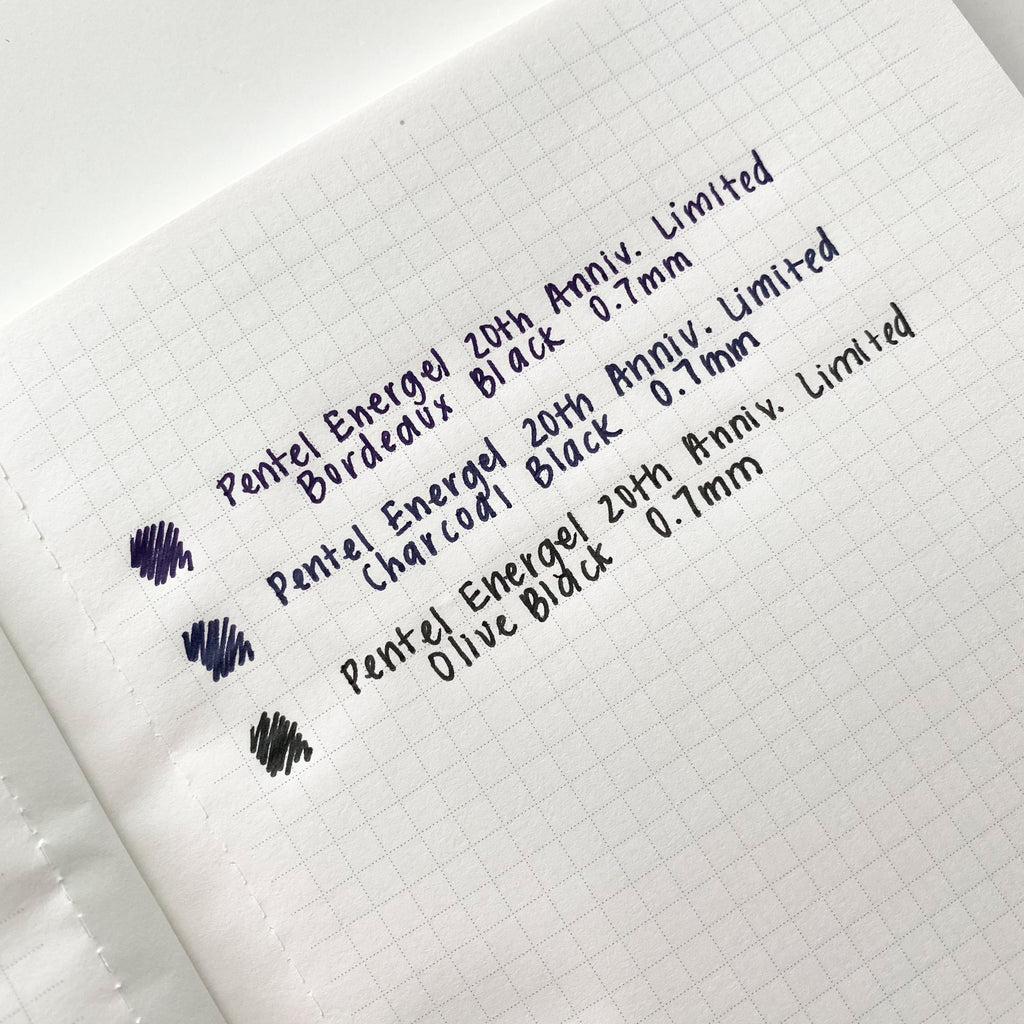 Pentel Energel 20th Anniv. Limited
Bordeaux Black 0.7mm
Pentel Energel 20th Anniv. Limited
Charcoal Black 0.7mm
Pentel Energel 20th Anniv. Limited
Olive Black 0.7mm